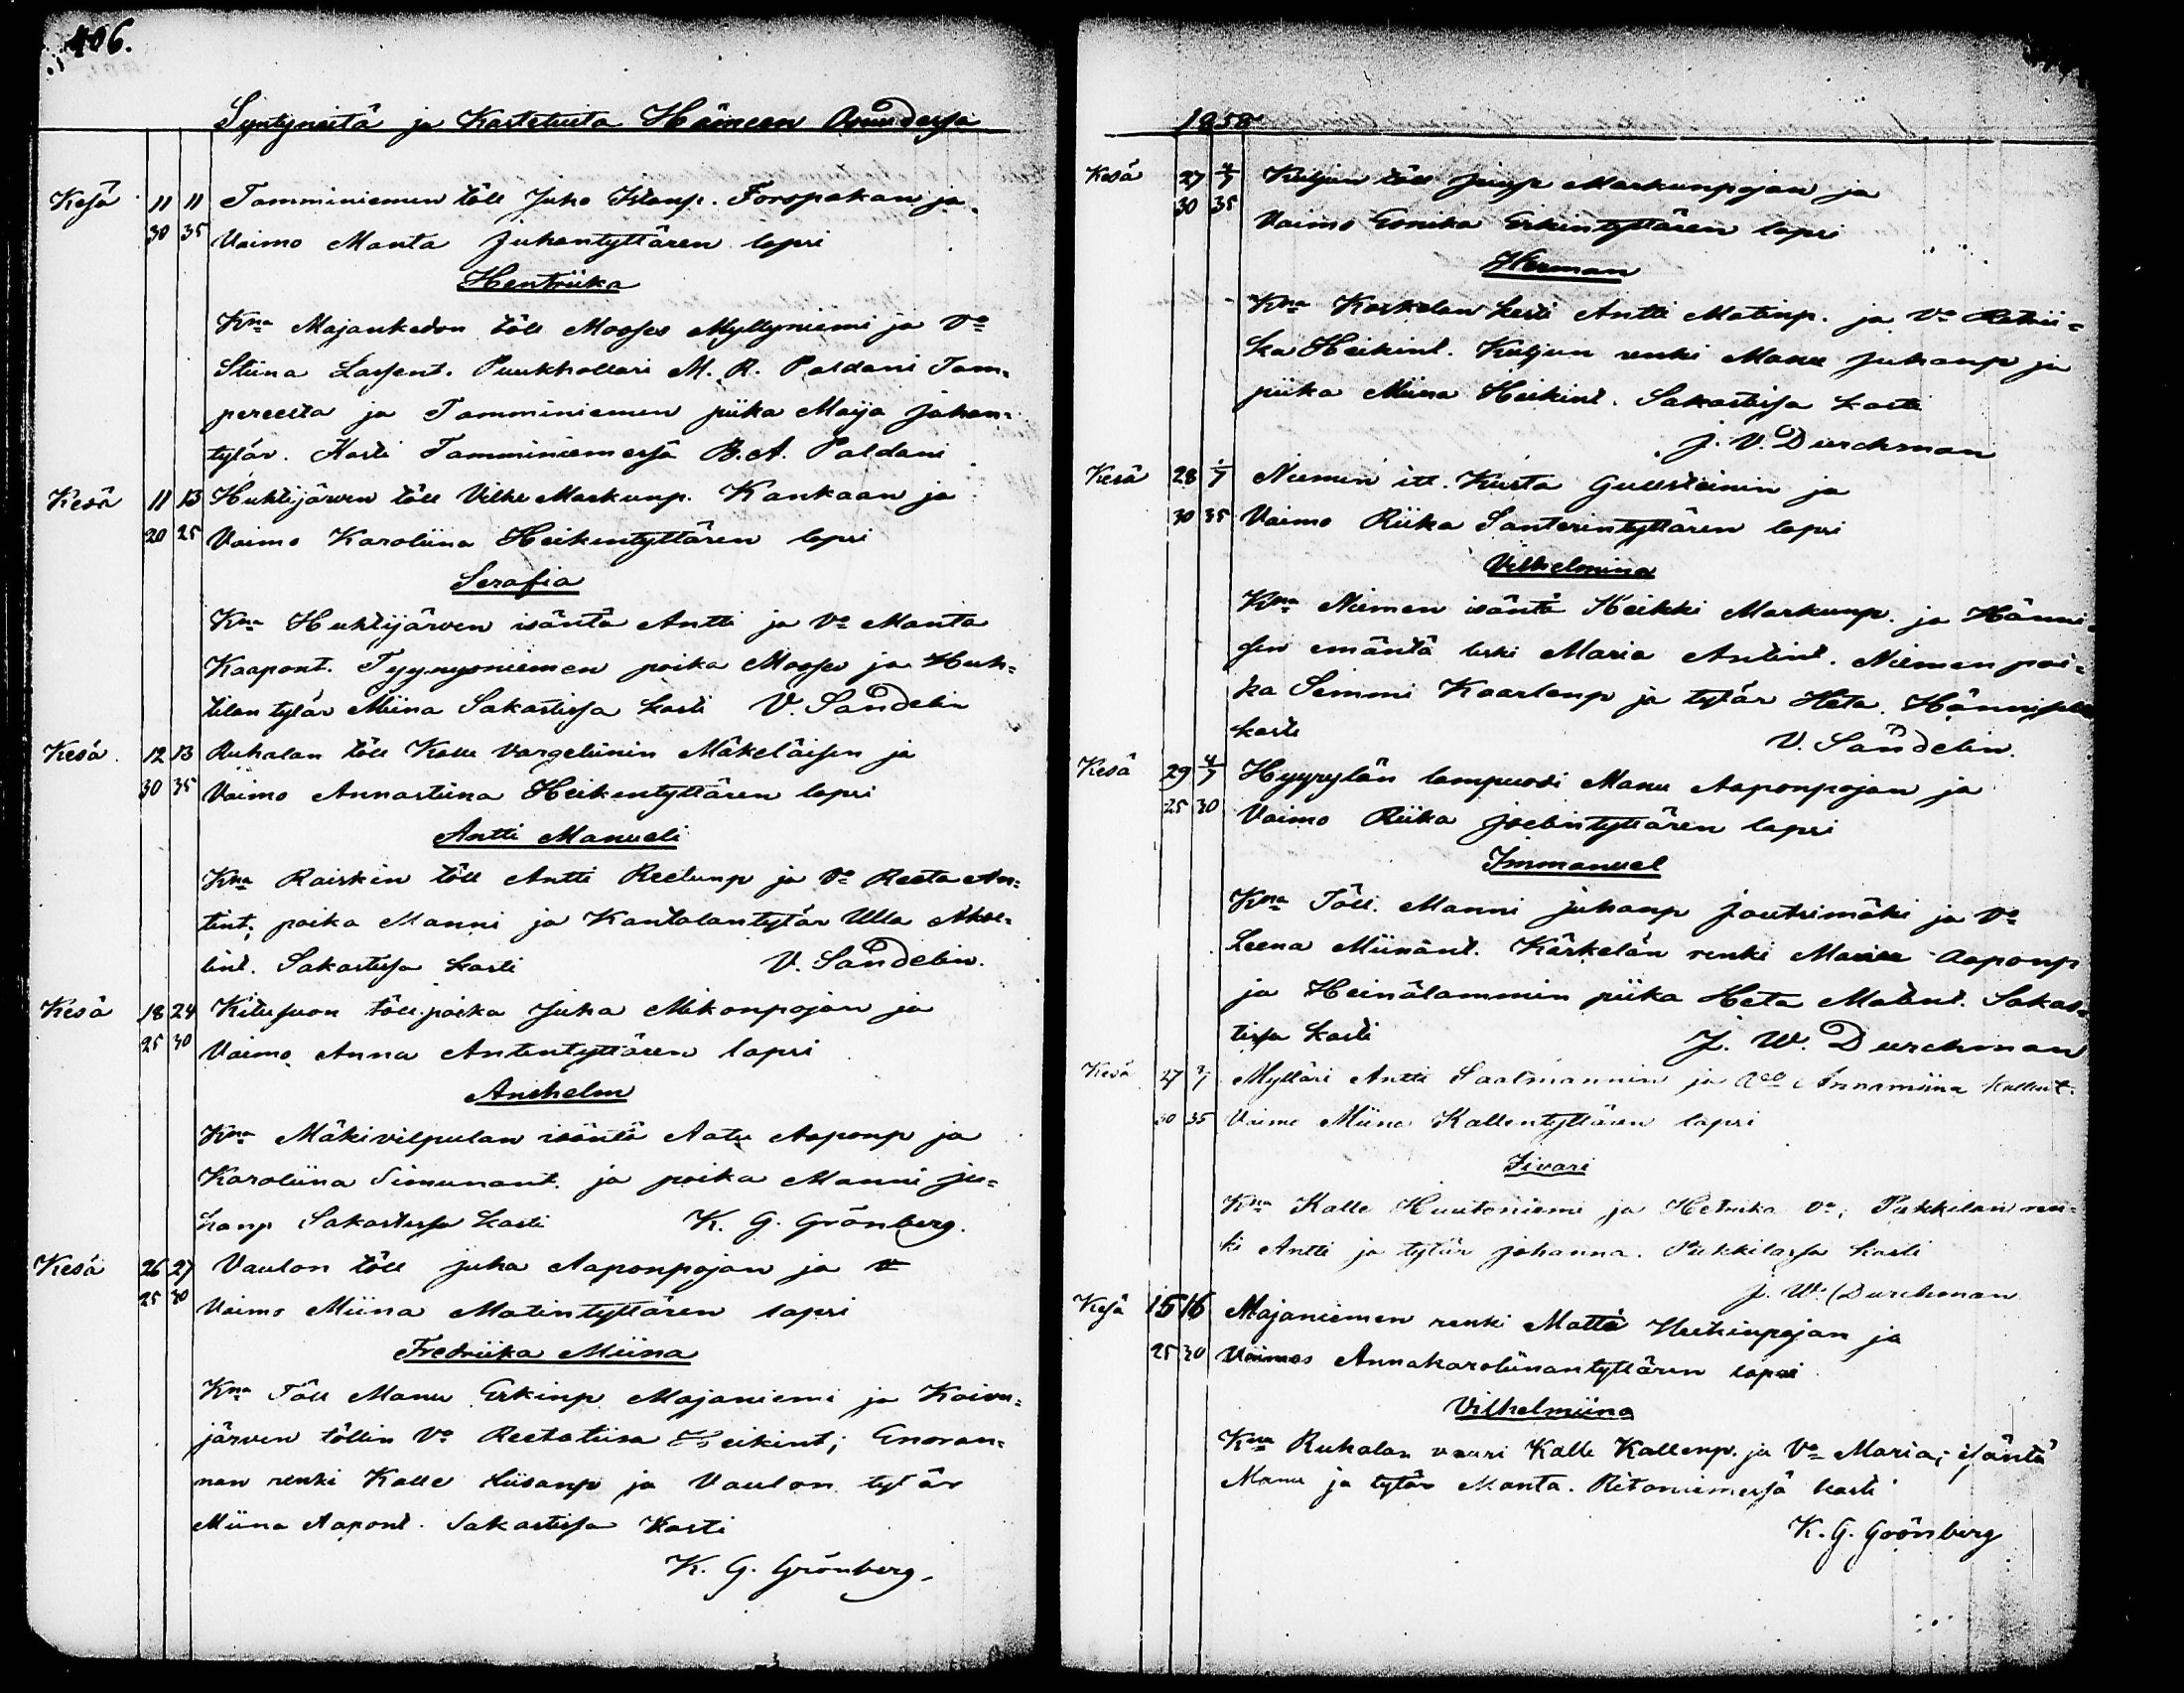 406.
Syntyneitä ja Kastetuita Hämeen Osuudessa
Kesä 11 11 Tamminiemen töll Juho Forspakan ja
30 35 Vaimo Manta Juhantyttären lapsi
Hentriika
Kna Majankedon töll Mooses Myllyniemi ja Vo
Stiina Lassent. Puukhollari M. R. Paldani Tam=
pereelta ja Tamminiemen piika Maija Johan=
tytär. Kasti Tamminiemessä B. A. Paldani
Kesä 11 13 Huhtijärven töll Vilhe Markunp. Kankaan ja
20 25 Vaimo Karoliina Heikintyttären lapsi
Serafia
Kna Huhtijärven isäntä Antti ja Vo Manta
Kaapont. Tyynysniemen poika Mooses ja Huh=
tilan tytär Miina Sakastissa kasti V. Sandelin
Kesä 12 13 Ruhalan töll Kalle Vargeliinin Mäkeläisen ja
30 35 Vaimo Annastiina Heikentyttären lapsi
Antti Manueli
Kna Raiskin töll Antti Reelunp ja Vo Reeta An=
tint; poika Manni ja Kantalantytär Ulla Aksel=
lint. Sakastissa kasti V. Sandelin.
Kesä 18 24 Kitusuon töll. poika Juha Mikonpojan ja
25 30 Vaimo Anna Antintyttären lapsi
Anshelm
Kna Mäkivilpulan isäntä Aatu Aaponp ja
Karoliina Simunant. ja poika Manni Ju=
hanp Sakastissa kasti K. G. Grönberg.
Kesä 26 27 Vaulon töll Juha Aaponpojan ja v
25 30 Vaimo Miina Matintyttären lapsi
Fredriika Miina
Kna Töll Manu Erkinp Majaniemi ja Koivu=
järven töllin Vo Reetatiisa Heikint; Enoran=
nan renki Kalle Liisanp ja Vaulon tytär
Miina Aapont. Sakastissa Kasti
K. G. Grönberg.
1858
Kesä 27 4/7 Kuljun töll Juup Markunpojan ja
30 35 Vaimo Eerika Erkintyttären lapsi
Herman
Kna Koskelan kesti Antti Matinp. ja Vo Retrii=
ka Heikint. Kuljun renki Manu Juhanp ja
piika Miina Heikint. Sakastissa kasti
J. V. Durchman
Kesä 28 1/7 Niemin itl. Kusta Gullsteinin ja
30 35 Vaimo Riika Santerintyttären lapsi
Vilhelmina
Kna Niemen isäntä Heikki Markunp. ja Hänni=
sen emäntä leski Maria Antint. Niemen poi=
ka Semmi Kaarlenp ja tytär Heta. Hännisellä
kasti V. Sandelin.
Kesä 29 4/7 Hyyrylän lampuodi Manu Aaponpojan ja
25 30 Vaimo Riika Joelintyttären lapsi
Immanuel
Kna Töll. Manni Juhanp Joutsimäki ja Vo
Leena Miinant. Kärkelän renki Aaponp
ja Heinälammin piika Heta Matint. Sakas=
tissa kasti J. W. Durchman
Kesä 27 2/7 Mylläri Antti Saatmannin ja Annamiina Kallent.
30 35 Vaimo Miina Kallentyttären lapsi
Iivari
Kna Kalle Huutoniemi ja Hetriika Vo, Pukkilan ren=
ki Antti ja tytär Johanna. Pukkilassa kasti
J. W. Durchman
Kesä 15 16 Majaniemen renki Matti Heikinpojan ja
25 30 Vaimos Annakaroliinantyttären lapsi
Vilhelmiina
Kna Ruhalan vaari Kalle Kallenp. ja Vo Maria; isäntä
Manu ja tytär Manta. Ritoniemessä kasti
K. G. Grönberg